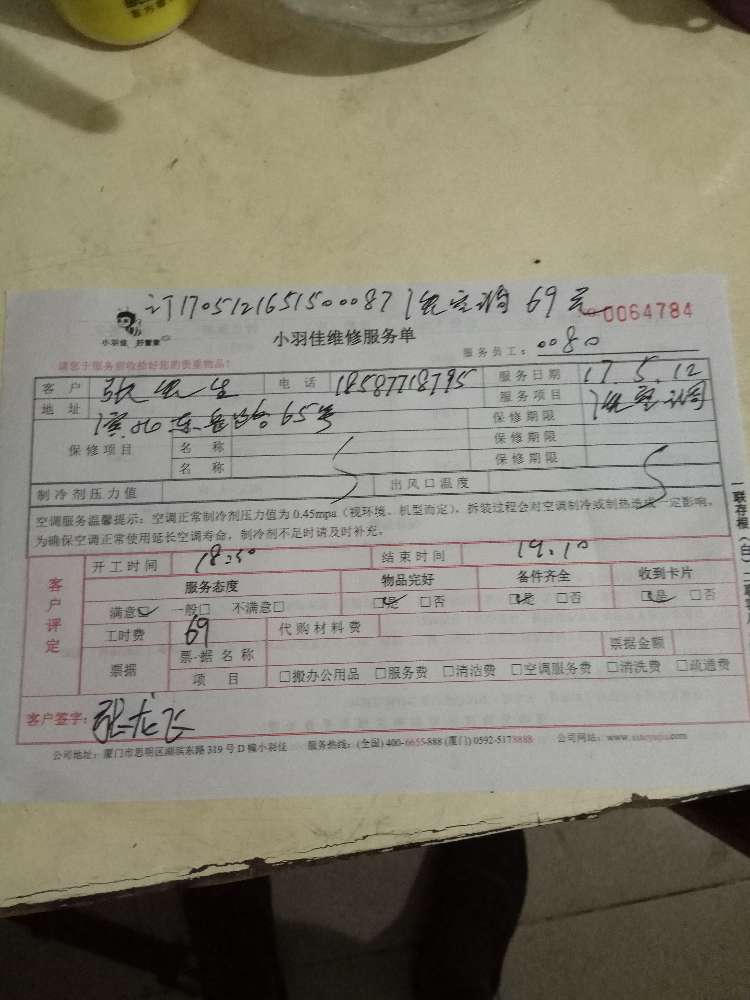 订1705121651500087 洗空调 69元
0064784
小羽佳 好管家
小羽佳维修服务单
请您于服务前收拾好您的贵重物品!
服务员工: 0080
客户 张先生 电话 18587718795 服务日期 17.5.12
地址 65号 服务项目 洗空调
保修项目 名称 保修期限
名称 保修期限
保修期限
制冷剂压力值 出风口温度
空调服务温馨提示: 空调正常制冷剂压力值为0.45mpa (视环境、机型而定), 拆装过程会对空调制冷或制热造成一定影响,
为确保空调正常使用延长空调寿命, 制冷剂不足时请及时补充。
开工时间 18:50 结束时间 19.10
客户评定
服务态度 物品完好 备件齐全 收到卡片
满意☑ 一般□ 不满意□ ☑是 □否 ☑是 □否 ☑是 □否
工时费 69 代购材料费
票据 票据名称 票据金额
项目 □搬办公用品 □服务费 □清洁费 □空调服务费 □清洗费 □疏通费
客户签字: 张龙飞
公司地址: 厦门市思明区湖滨东路319号D幢小羽佳 服务热线: (全国) 400-6655-888 (厦门) 0592-5178888 公司网站: www.xiaoyujia.com
一联存根(白)